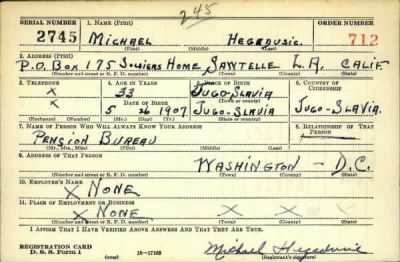 245
SERIAL NUMBER 1. NAME (Print) ORDER NUMBER
2745 MICHAEL HEGEDUSIC. 712
(First) (Middle) (Last)
2. ADDRESS (Print)
P.O. BOX 175 SOLDIERS HOME SAWTELLE L.A. CALIF.
(Number and street or R. F. D. number) (Town) (County) (State)
3. TELEPHONE 4. AGE IN YEARS 5. PLACE OF BIRTH 6. COUNTRY OF CITIZENSHIP
X 33 JUGO-SLAVIA
(Town or county)
DATE OF BIRTH
X 5 1907 JUGO-SLAVIA JUGO-SLAVIA.
(Exchange) (Number) (Mo.) (Day) (Yr.) (State or country)
7. NAME OF PERSON WHO WILL ALWAYS KNOW YOUR ADDRESS 8. RELATIONSHIP OF THAT PERSON
PENSION BUREAU X
(Mr., Mrs., Miss) (First) (Middle) (Last)
9. ADDRESS OF THAT PERSON
WASHINGTON - D.C.
(Number and street or R. F. D. number) (Town) (County) (State)
10. EMPLOYER'S NAME
X NONE
11. PLACE OF EMPLOYMENT OR BUSINESS
X NONE X X X
(Number and street or R. F. D. number) (Town) (County) (State)
I AFFIRM THAT I HAVE VERIFIED ABOVE ANSWERS AND THAT THEY ARE TRUE.
REGISTRATION CARD
D. S. S. Form 1 16-17105 Michael Hegedusic
(Registrant's signature)